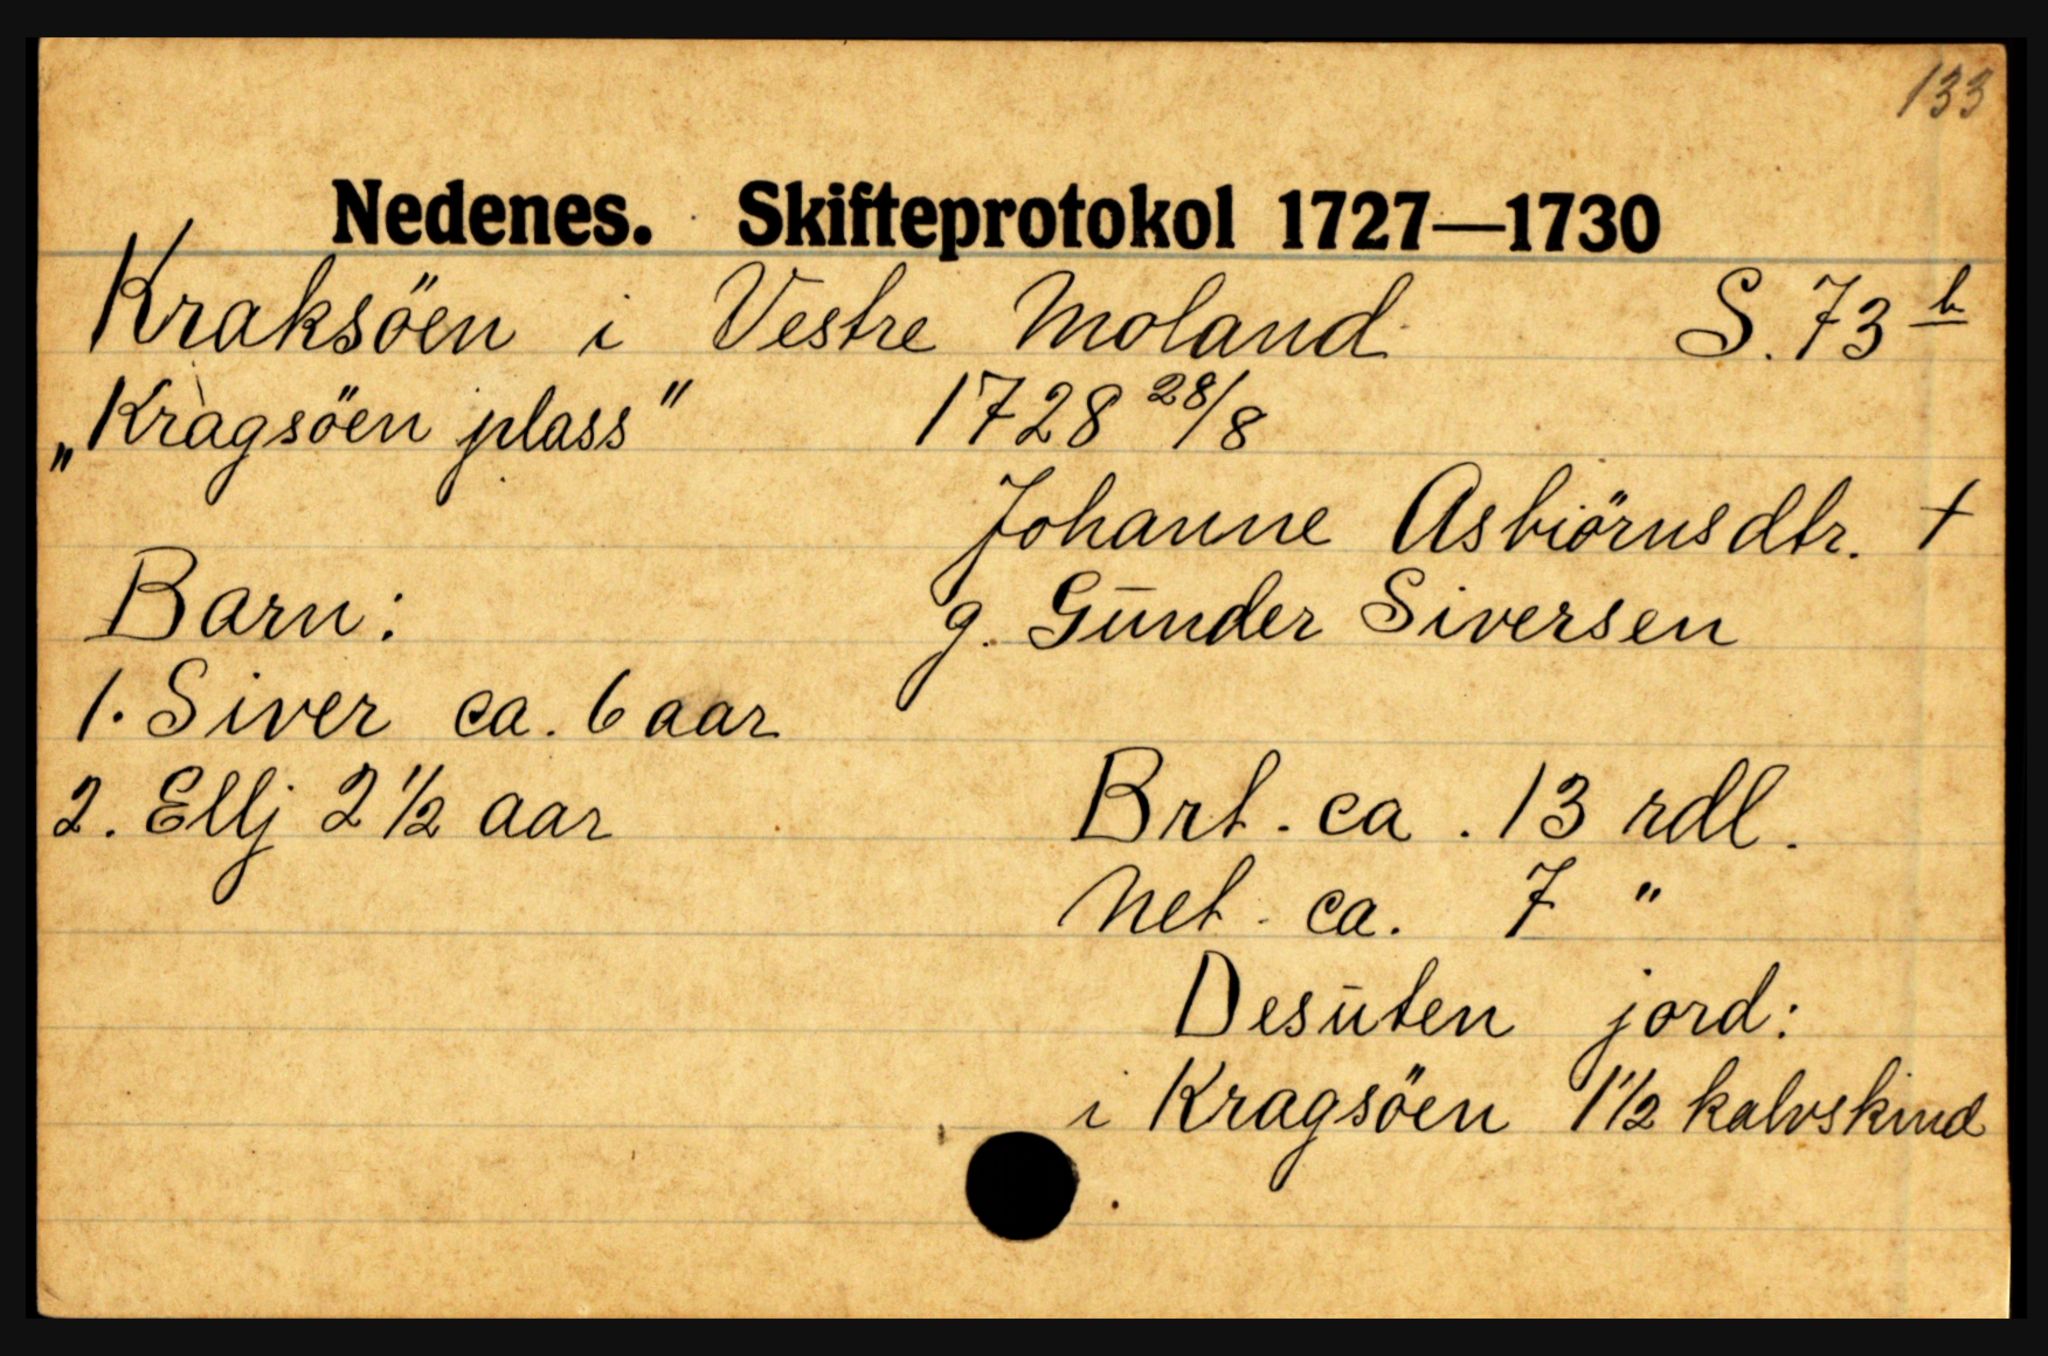 133
Nedenes. Skifteprotokol 1727—1730
Kraksöen i Vestre Moland S. 73 b
„Kragsöen plass" 1728 28/8
Johanne Asbiörnsdtr. †
Barn: g. Gunder Siversen
1. Siver ca. 6 aar
2. Ellj 2 1/2 aar Brt. ca. 13 rdl.
Net. ca. 7 "
Desuten jord:
i Kragsöen 1 1/2 kalvskind